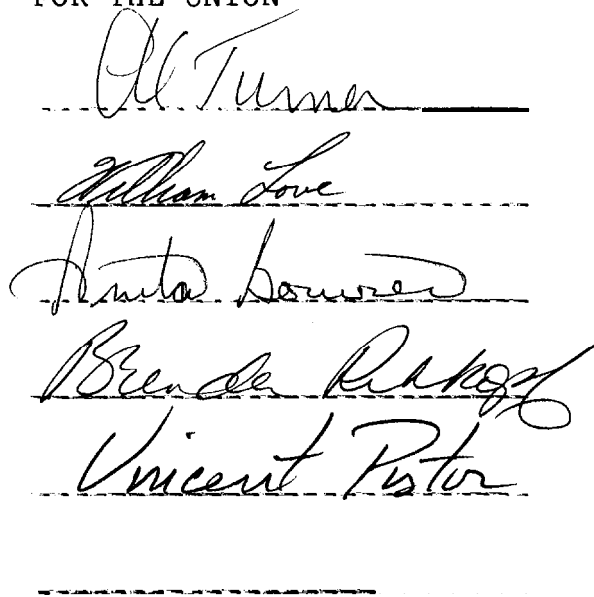 FOR THE UNION
Al Turner
William Love
Anita
Brenda
Vincent Pistor